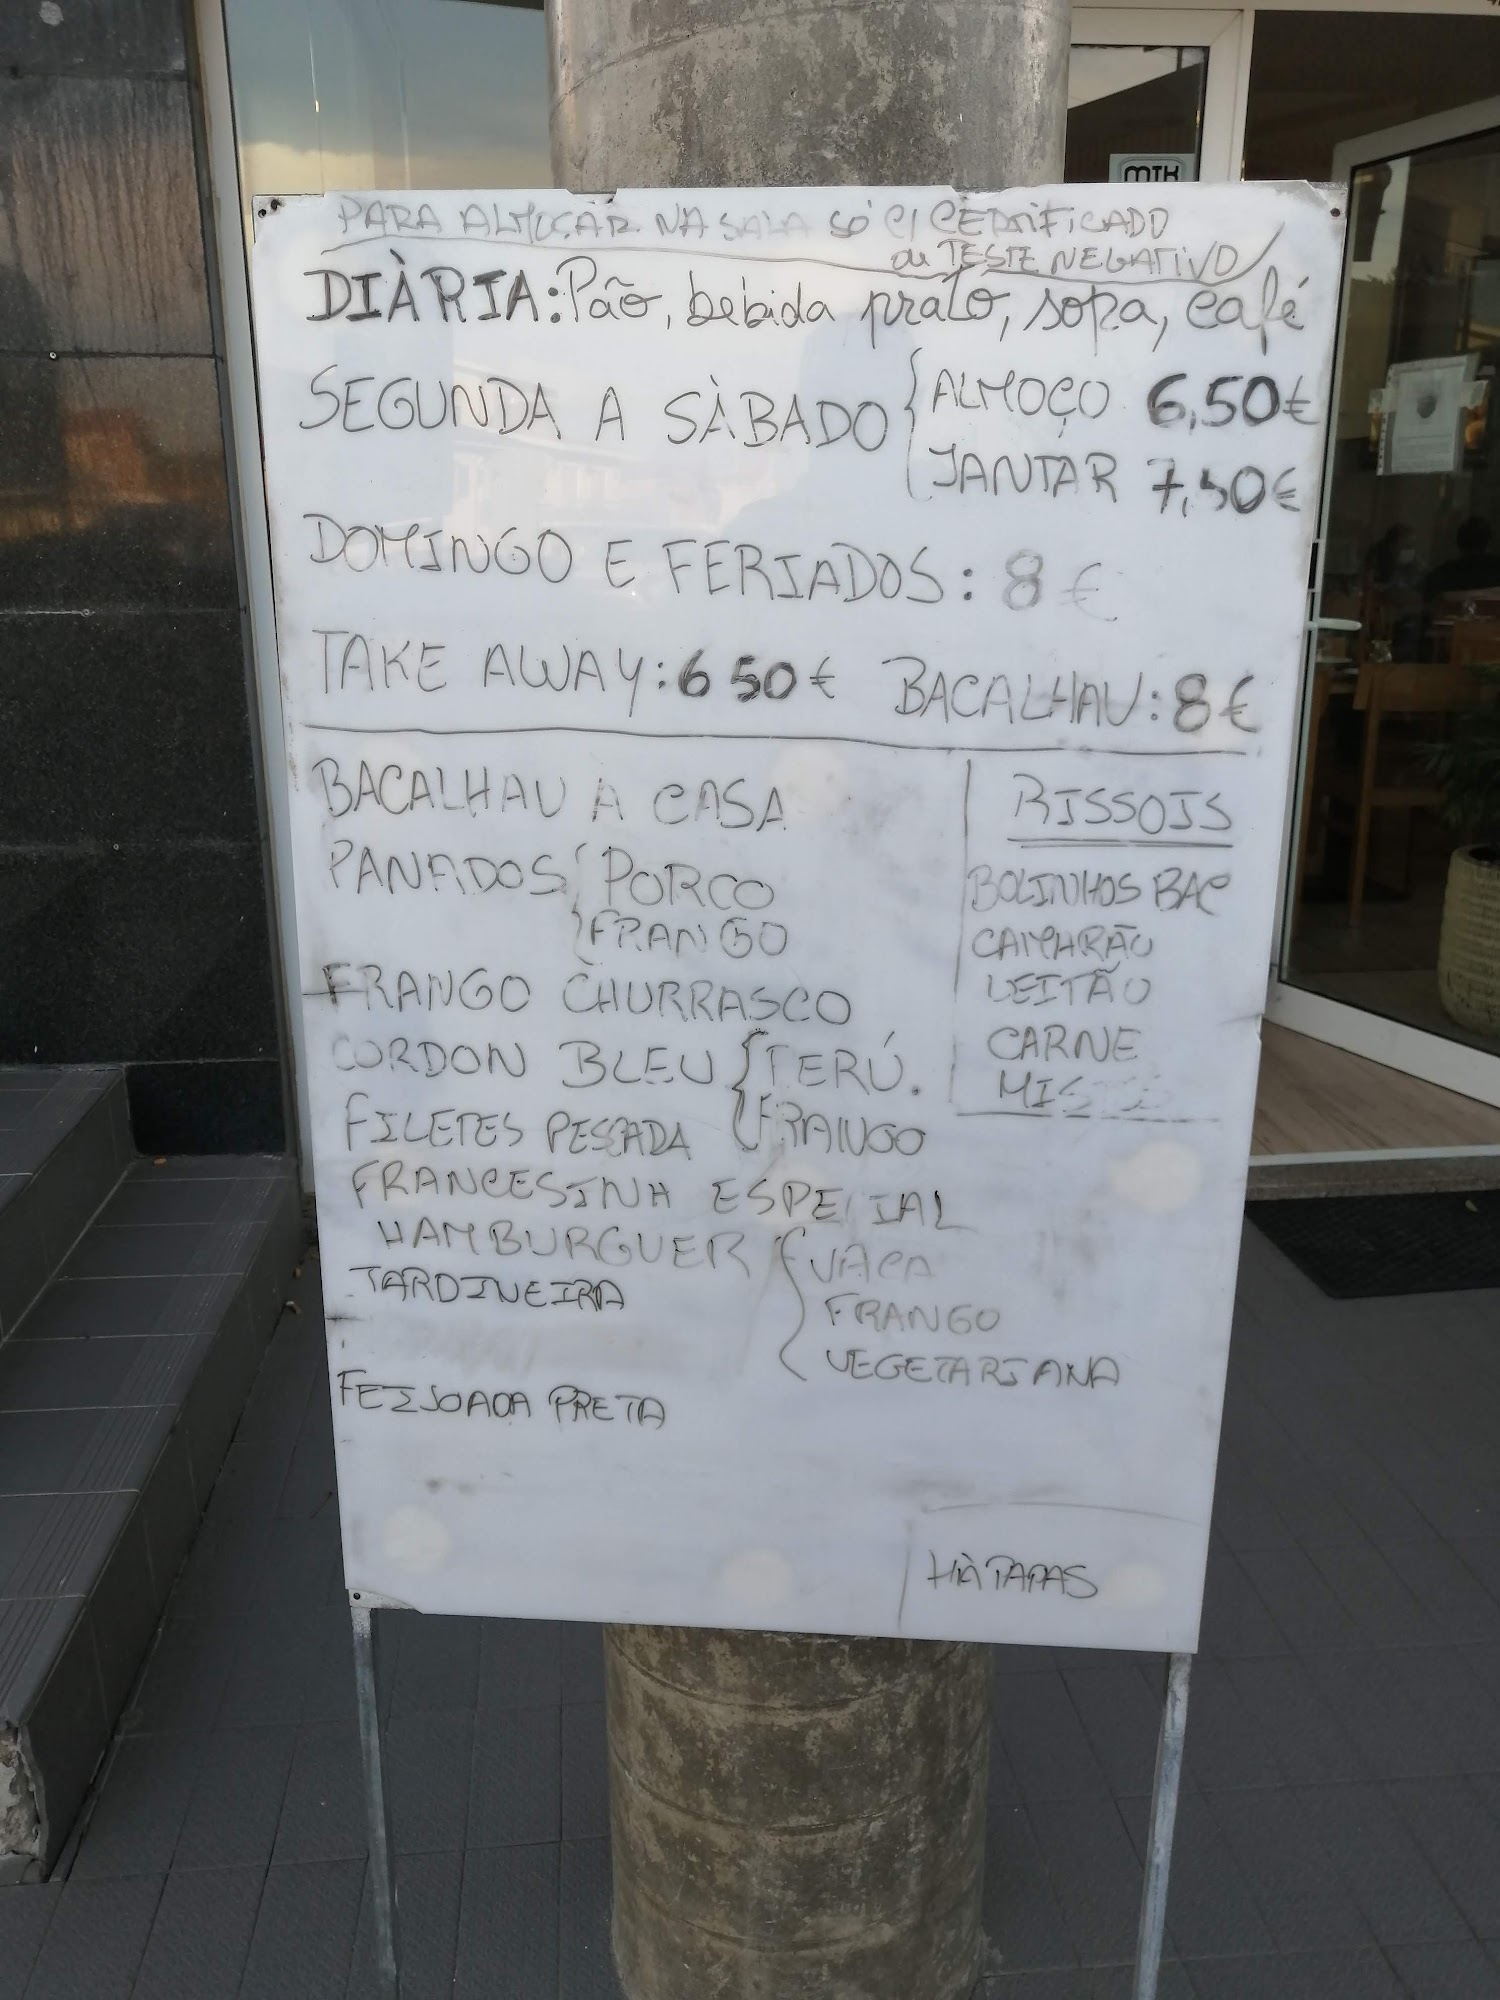 MTK
PARA ALMOÇAR NA SALA SÓ C/ CERTIFICADO
ou TESTE NEGATIVO
DIÀRIA: Pão, bebida prato, sopa, café
SEGUNDA A SÀBADO
ALMOÇO 6,50€
JANTAR 7,50€
DOMINGO E FERIADOS: 8€
TAKE AWAY: 6 50€ BACALHAU: 8€
BACALHAU A CASA
PANADOS PORCO
FRANGO
FRANGO CHURRASCO
CORDON BLEU TERÚ.
FRANGO
FILETES PESCADA
FRANCESINHA ESPECIAL
HAMBURGUER VACA
FRANGO
VEGETARIANA
JARDINEIRA
FEIJOADA PRETA
RISSOIS
BOLINHOS BAC
CAMARÃO
LEITÃO
CARNE
HÀ PAPAS